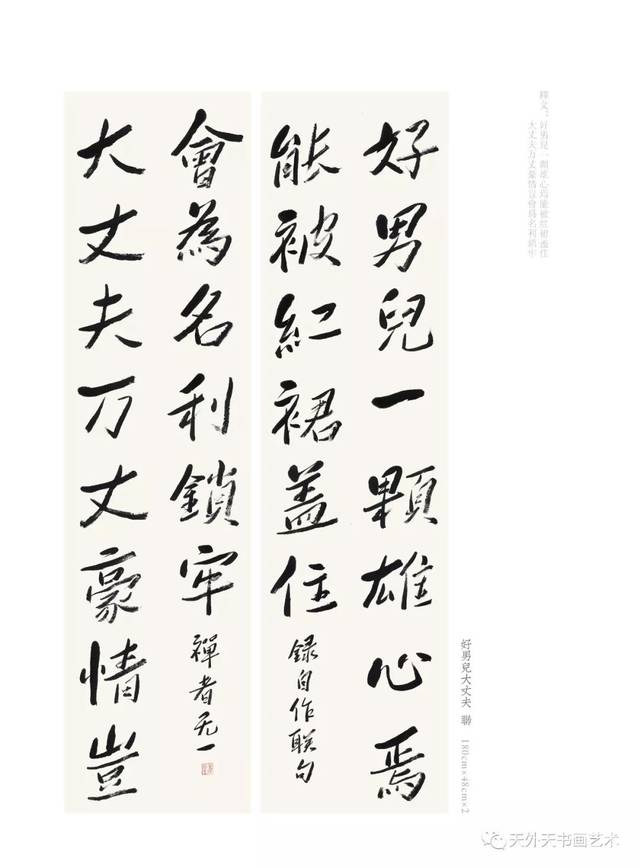 釋文：好男兒一顆雄心焉能被紅裙蓋住
大丈夫万丈豪情豈會為名利鎖牢
好男兒一顆雄心焉
能被紅裙盖住
録自作联句
大丈夫万丈豪情豈
會為名利鎖牢
禪者无一
好男兒大丈夫 聯 180cm×48cm×2
天外天书画艺术